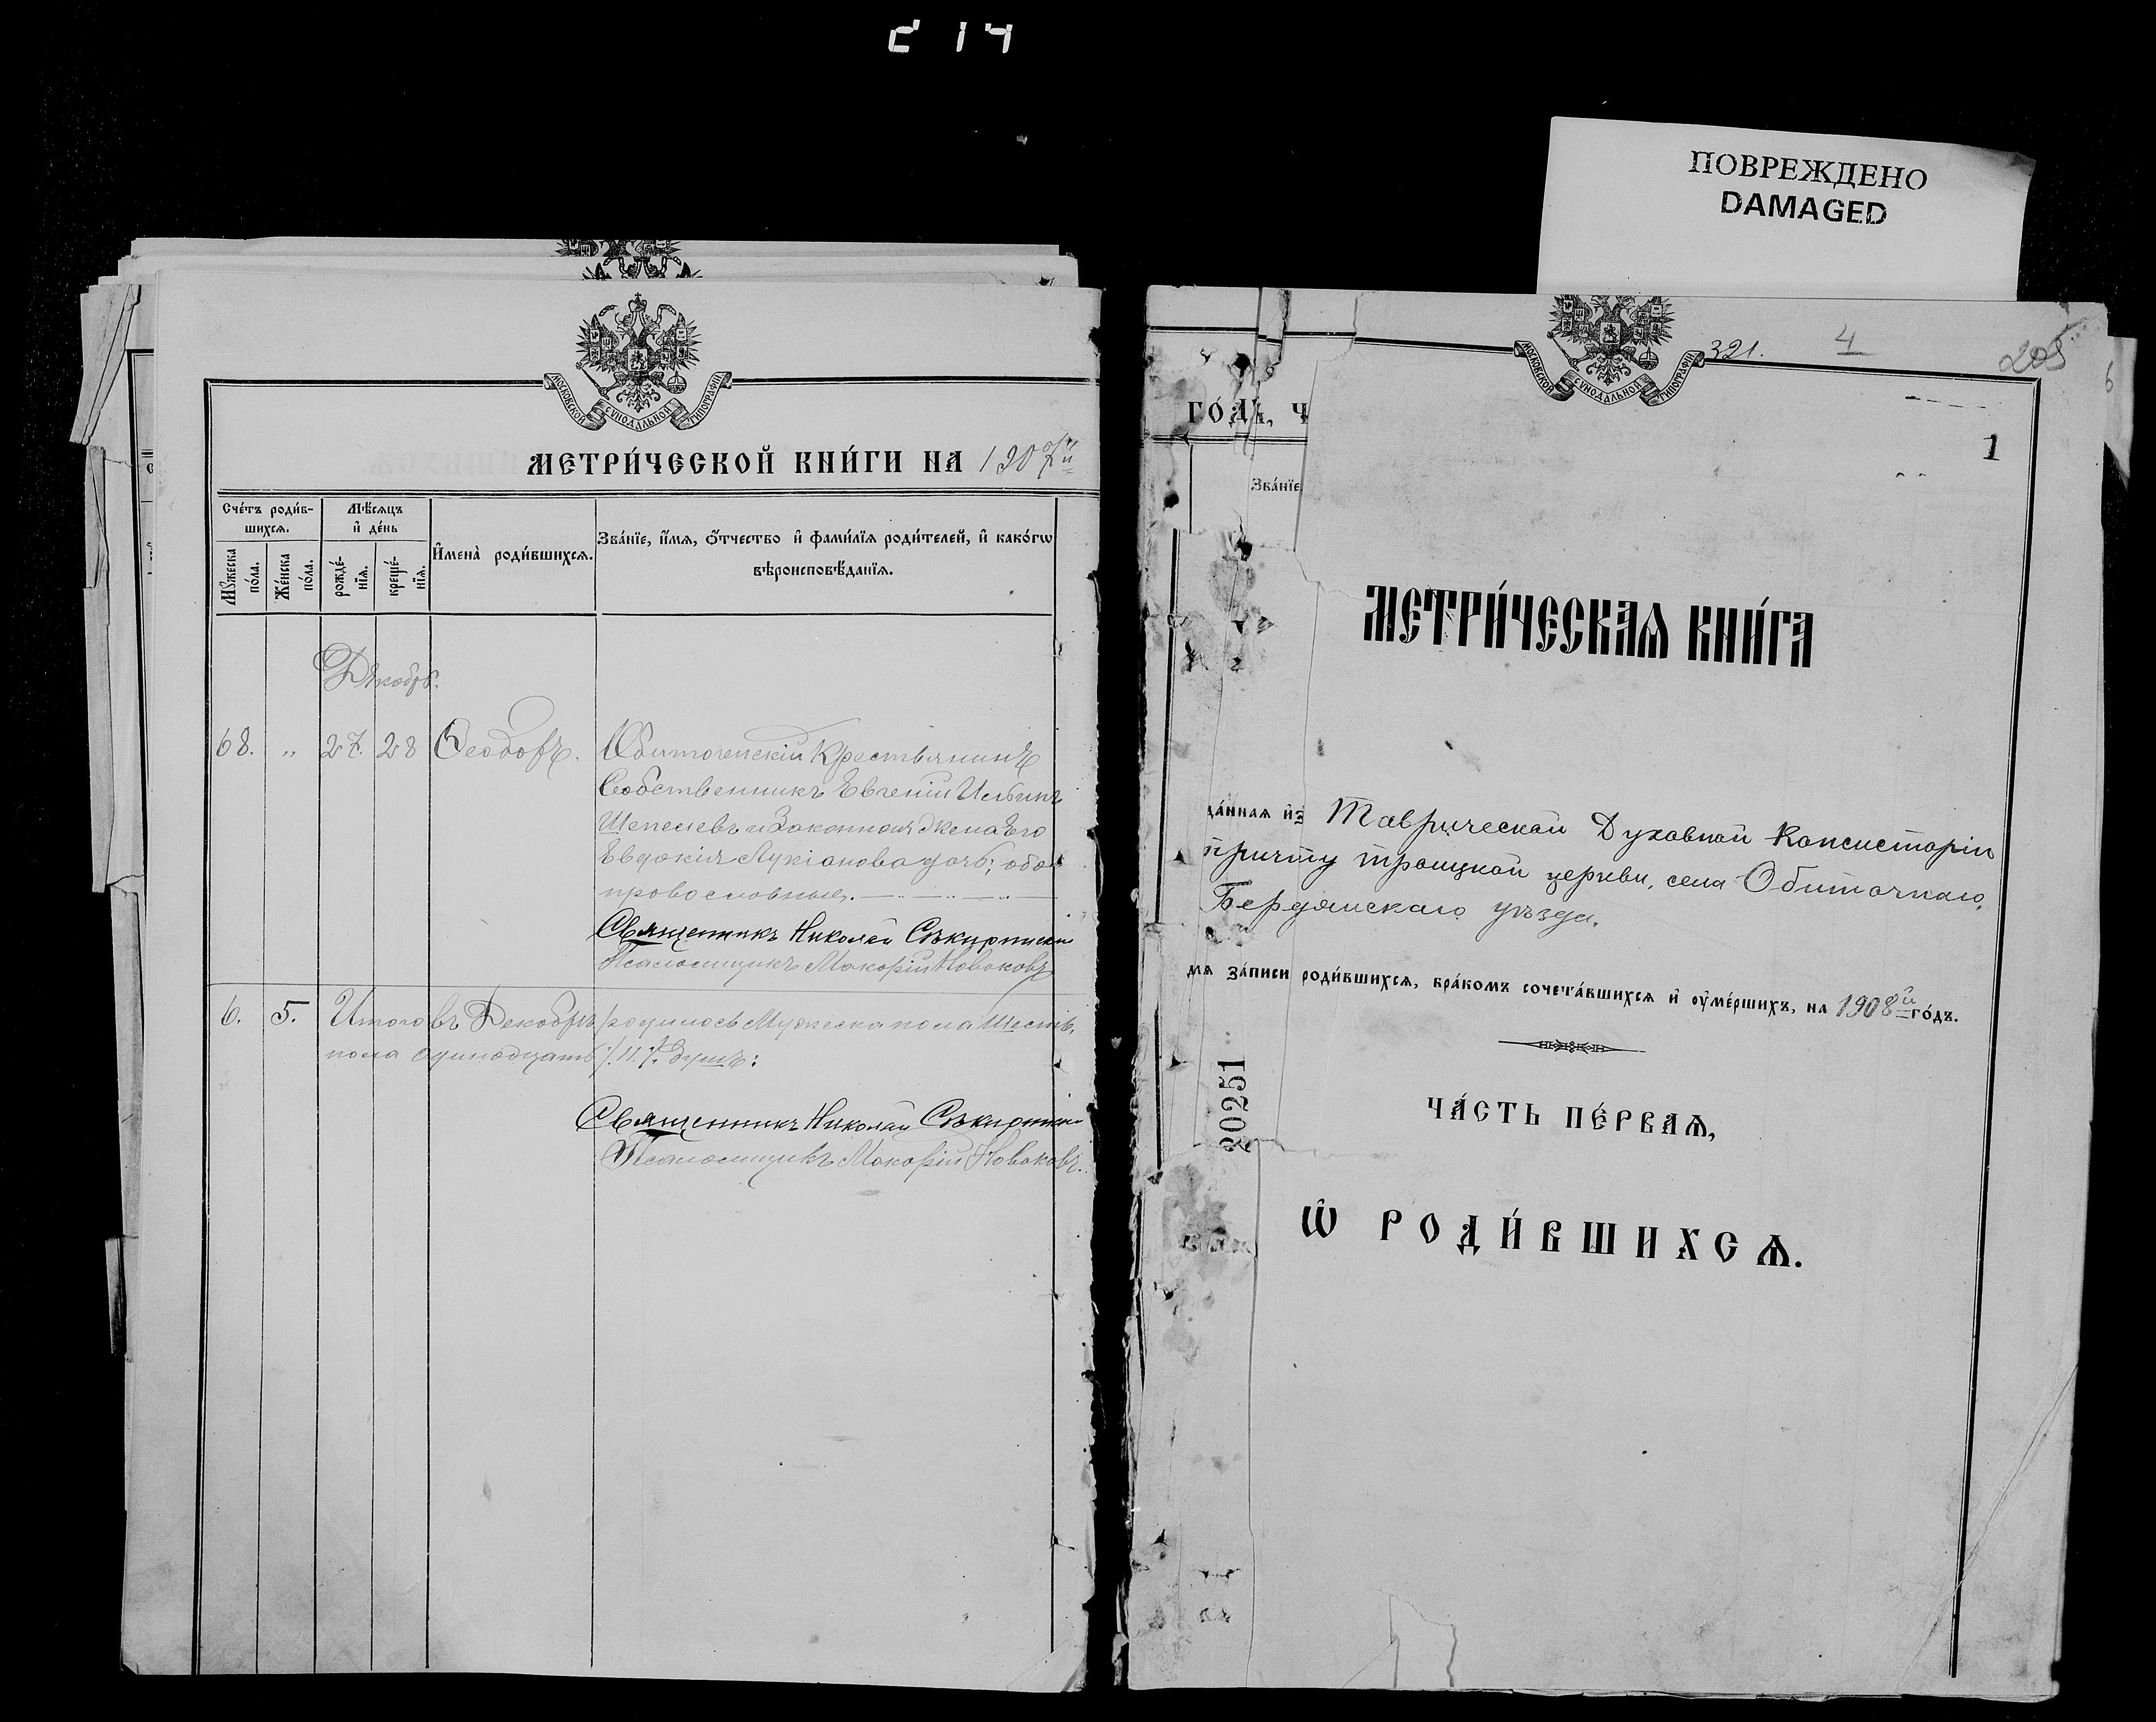 214
ПОВРЕЖДЕНО
DAMAGED
МОСКОВСКОЙ СѴНОДАЛЬНОЙ ТИПОГРАФІИ
МЕТРИ́ЧЕСКОЙ КНИ́ГИ НА 1907й
Сче́тъ роди́в-
шихсѧ.
Мꙋ́жеска
по́ла.
Же́нска
по́ла.
Мѣ́сѧцъ
и҆ де́нь
рожде́-
нїѧ.
креще́-
нїѧ.
И҆мена̀ роди́вшихсѧ.
Зва́нїе, и҆́мѧ, ѻ҆́тчество и҆ фами́лїѧ роди́телей, и҆ како́гѡ
вѣроисповѣ́данїѧ.
Декабрь.
68. „ 27. 28 Ѳеодоръ.
Обиточенскій Крестьянинъ
Собственникъ Евгеній
и Законная Жена Его
Евдокія Лукіанова дочь; оба
православные.
Священникъ Николай
Псаломщикъ Макарій Новаковъ
6. 5. Итого въ Декабрѣ родилось Мужеска пола Шесть,
пола одиннадцать /.11./. душъ:
Священникъ Николай
Псаломщикъ Макарій Новаковъ.
МОСКОВСКОЙ СѴНОДАЛЬНОЙ ТИПОГРАФІИ
321. 4 205
1
ГО́ДЪ, Ч
Зва́нїе
МЕТРИ́ЧЕСКАѦ КНИ́ГА
да́нная и҆з Таврической Духовной Консисторіи
причту Троицкой церкви, села Обиточнаго,
Бердянскаго уѣзда.
для за́писи роди́вшихсѧ, бра́комъ сочета́вшихсѧ и҆ ᲂу҆ме́ршихъ, на 1908й го́дъ.
20251
ЧА́СТЬ ПЕ́РВАѦ,
Ѡ҆ РОДИ́ВШИХСѦ.